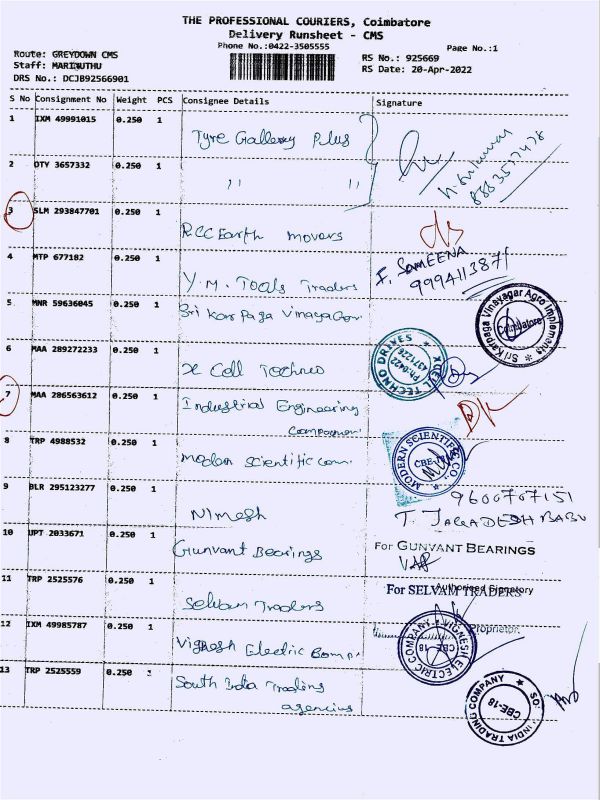 THE PROFESSIONAL COURIERS, Coimbatore
Delivery Runsheet - CMS
Phone No.:0422-3505555
Page No.:1
Route: GREYDOWN CMS
Staff: MARIMUTHU
DRS No.: DCJB92566901
RS No.: 925669
RS Date: 20-Apr-2022
S No Consignment No Weight PCS Consignee Details Signature
1 IXM 49991015 0.250 1 Tyre Gallery Plus
H. 8883577478
2 DTY 3657332 0.250 1 " "
3 SLM 293847701 0.250 1 RCC Earth movers
4 MTP 677182 0.250 1 Y.M. Tools Traders
F. SAMEENA
9994113871
5 MNR 59636045 0.250 1 Sri Karpaga Vinayagar
Sri Karpaga Vinayagar Agro Implemants
Coimbatore
6 MAA 289272233 0.250 1 X Cell Techno
XCELL TECHNO DRIVES
Ph:0422
4371226
7 MAA 286563612 0.250 1 Industrial Engineering
8 TRP 4988532 0.250 1 modern scientific com.
MODERN SCIENTIFIC CO.
9 BLR 295123277 0.250 1 Nimesh
9600707151
T. JAGADESH BABU
10 UPT 2033671 0.250 1 Gunvant Bearings
For GUNVANT BEARINGS
Authorised Signatory
11 TRP 2525576 0.250 1 Selvam Traders
For SELVAM TRADERS
Proprietor
12 IXM 49985787 0.250 1 Vignesh Electric Comp.
VIGNESH ELECTRIC COMPANY
CBE-18
13 TRP 2525559 0.250 1 South India Trading
agencies
SOUTH INDIA TRADING COMPANY
CBE-18